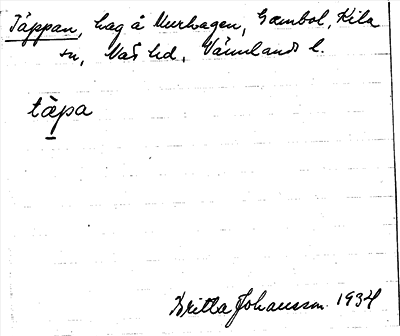 Täppan, hag å Murhagen, Gambol, Kila
sn, Näs hd, Värmlands l.
tä̱pa
Britta Johansson 1934